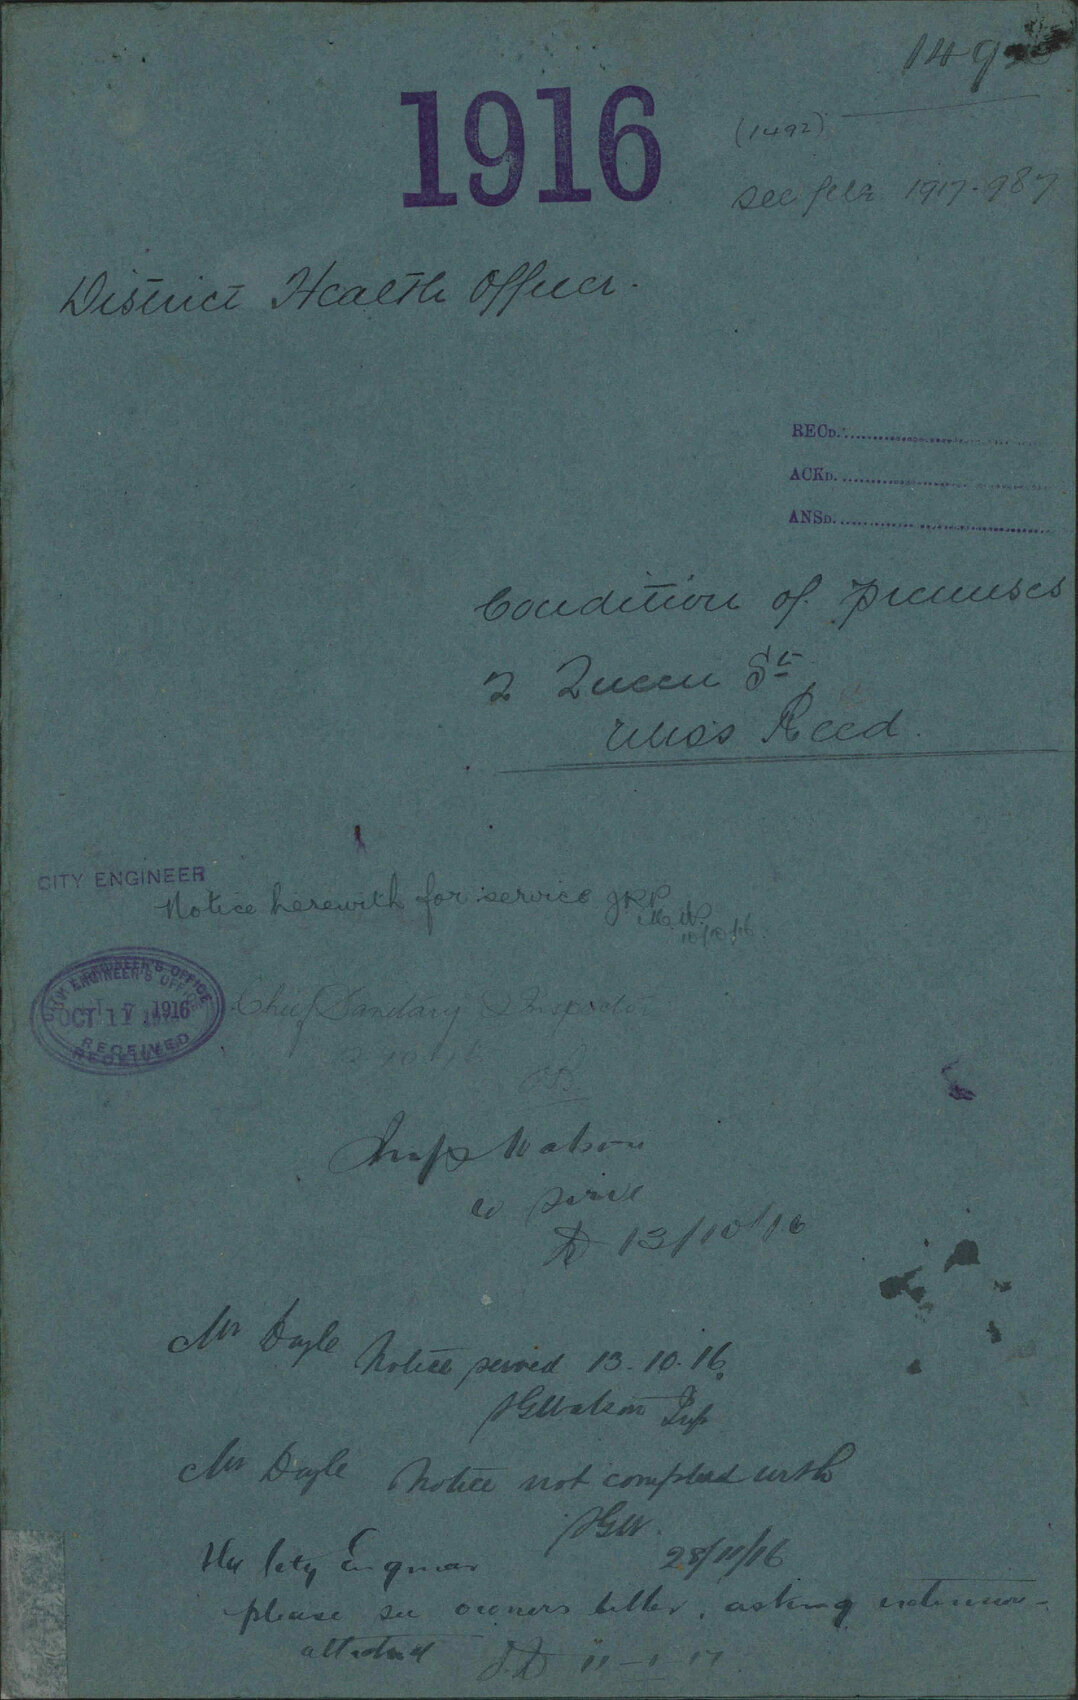 149
1916
(1492)
See file 1917-987
District Health Officer.
RECD.
ACKD.
ANSD.
Condition of premises
2 Queen St
Miss Reed.
CITY ENGINEER
Notice herewith for service JRP
10/10/16.
CITY ENGINEER'S OFFICE
OCT 1916
RECEIVED
Chief Sanitary Inspector
10 16
Insp Watson
to serve
D 13/10/16
Mr Doyle Notice served 13-10-16.
JGWatson Insp
Mr Doyle Notice not complied with
JGW.
28/11/16
The City Engineer
please see owners letter, asking extension -
attached J.D 11-1-17